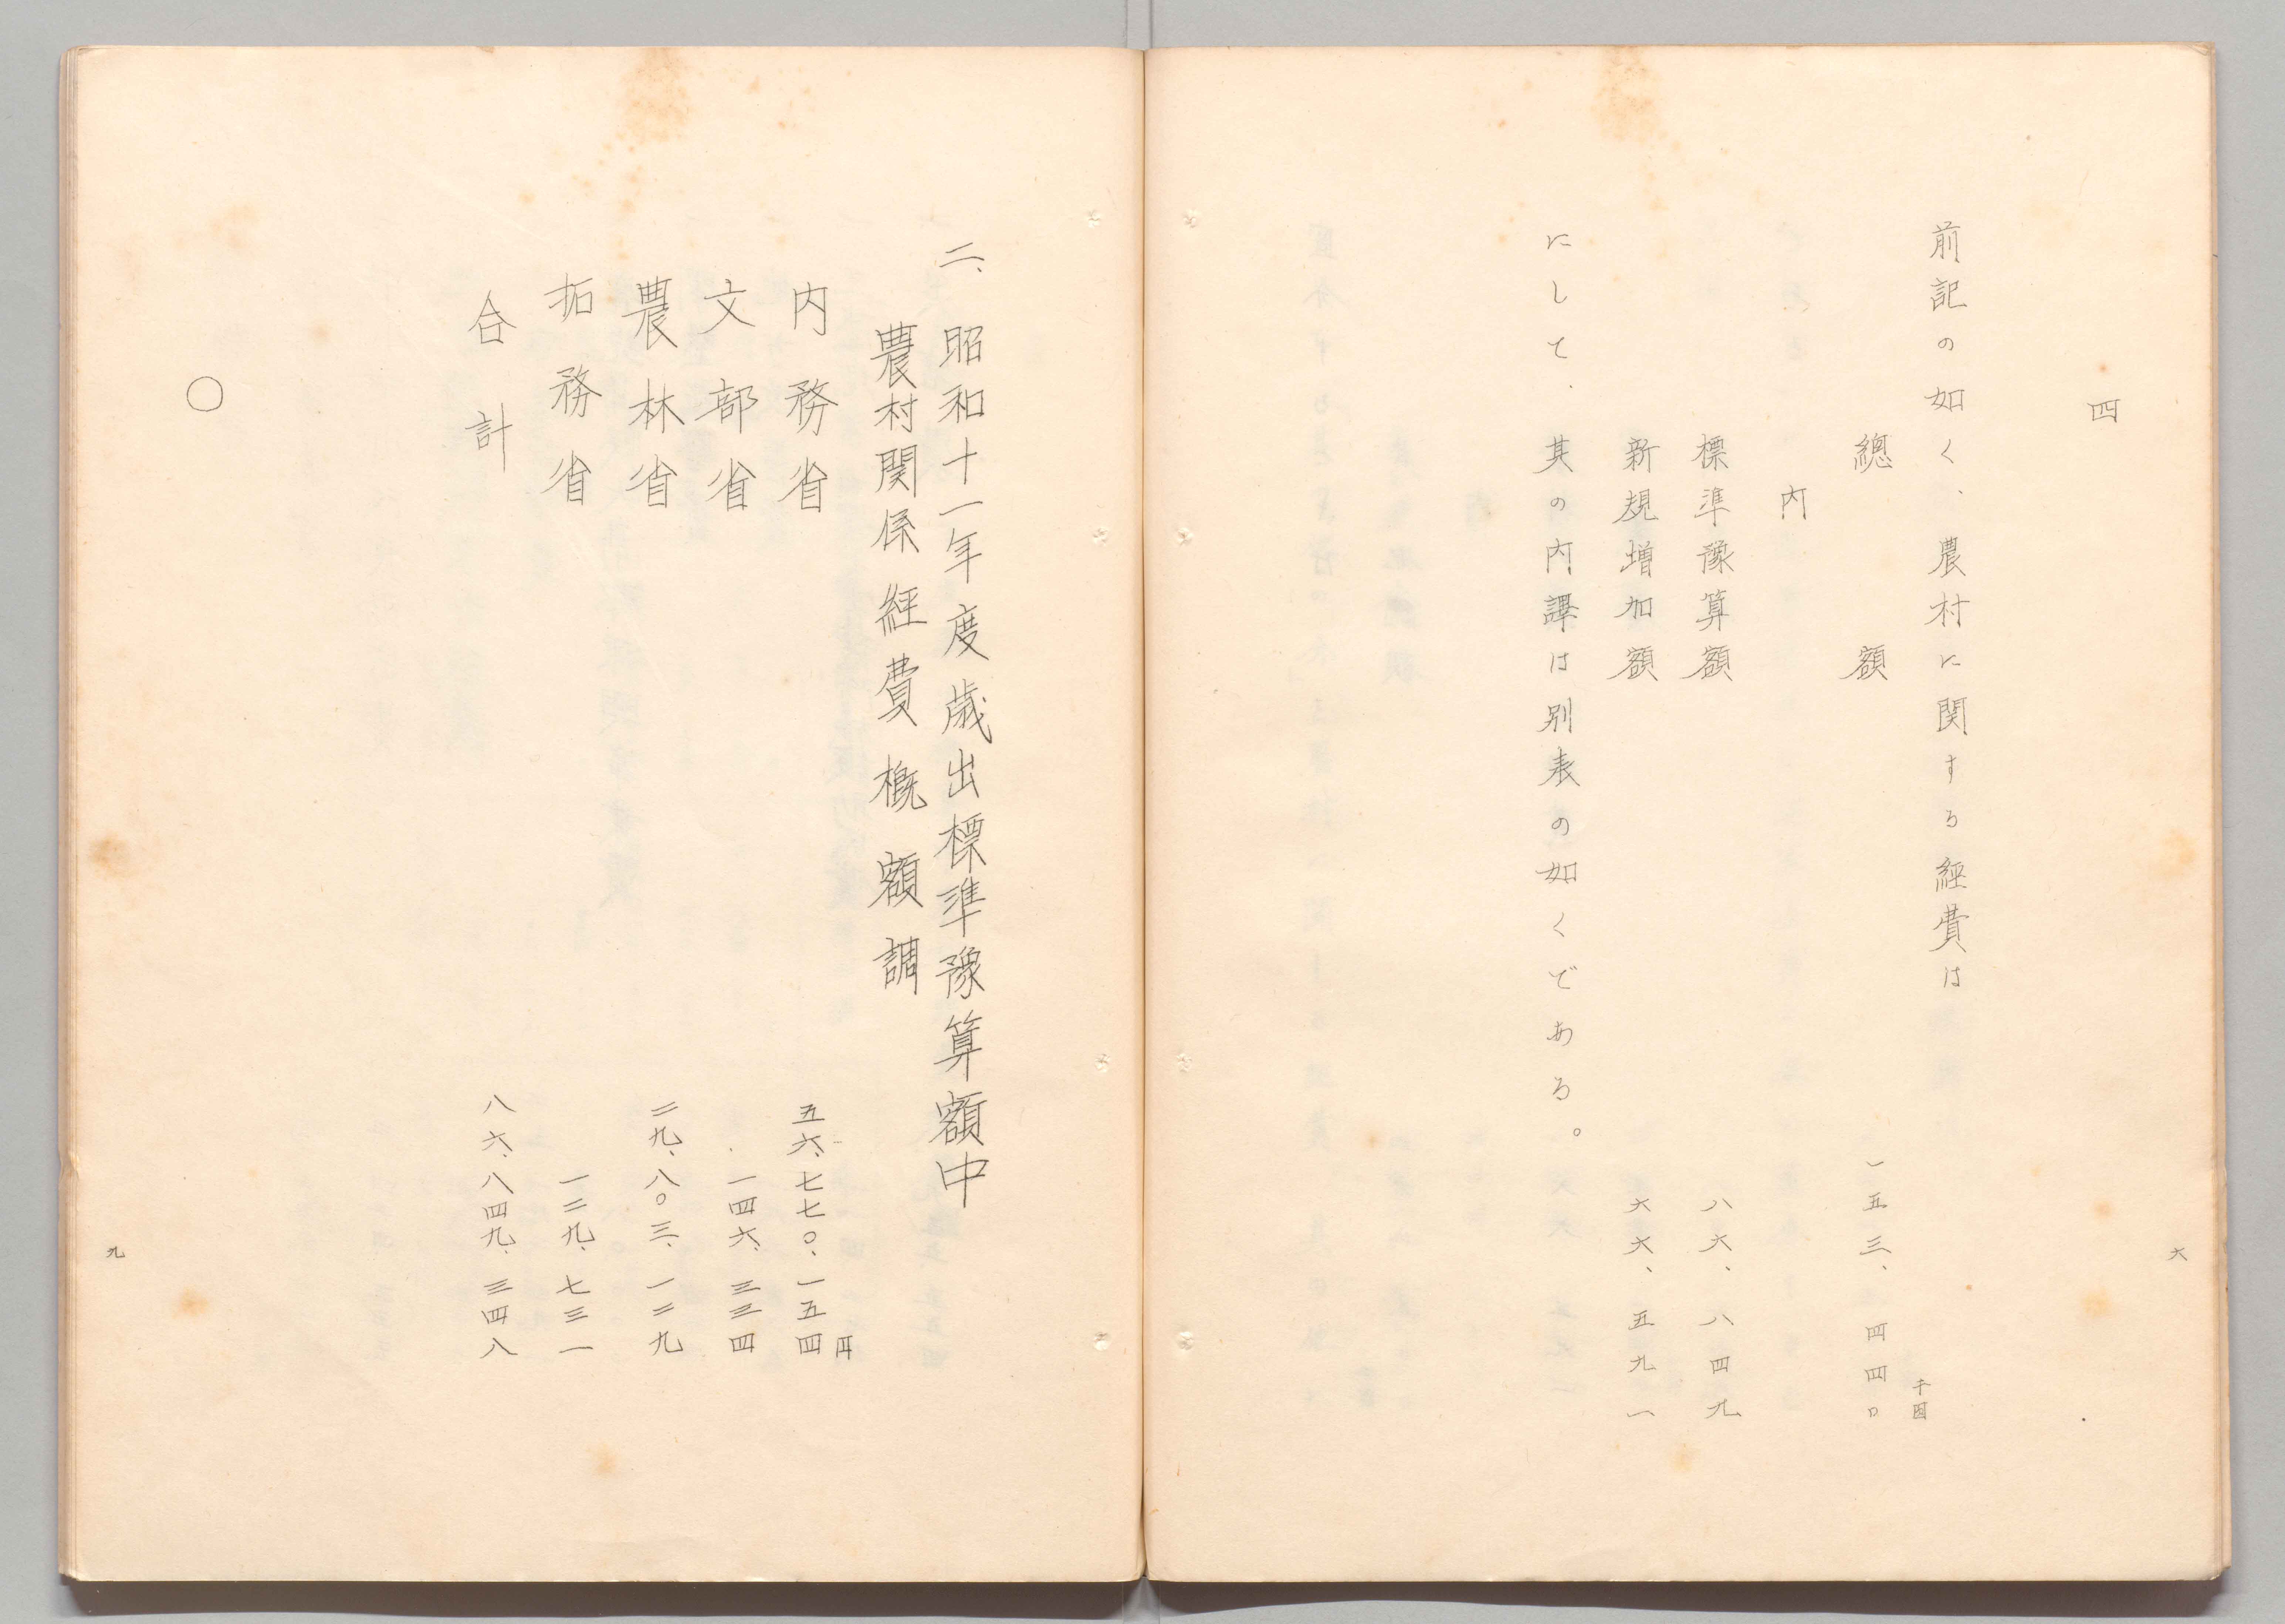 四
前記の如く、農村に関する経費は
千円
總額 一五三、四四〇
内
標準豫算額 八六、八四九
新規増加額 六六、五九一
にして、其の内譯は別表の如くである。
六
二、昭和十一年度歳出標準豫算額中
農村関係経費概額調
円
内務省 五六、七七〇、一五四
文部省 一四六、三三四
農林省 二九、八〇三、一二九
拓務省 一二九、七三一
合計 八六、八四九、三四八
〇
九